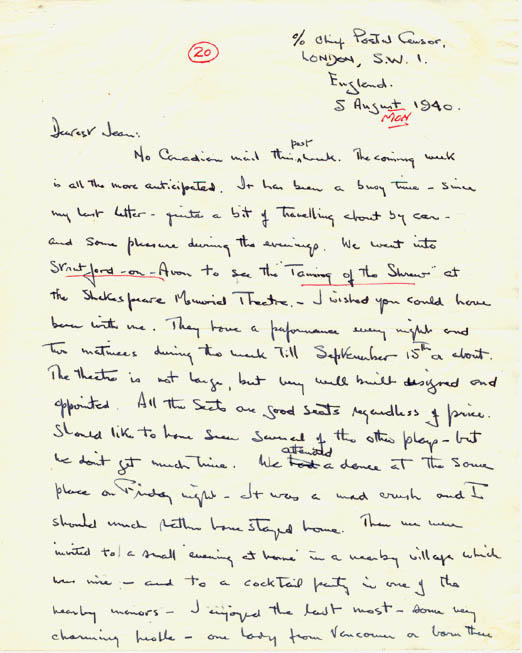 20
c/o Chief Postal Censor,
LONDON, S.W. 1.
England.
5 August 1940.
MON
Dearest Jean:
No Canadian mail this past week. The coming week
is all the more anticipated. It has been a busy time - since
my last letter - quite a bit of travelling about by car -
and some pleasure during the evenings. We went into
Stratford-on-Avon to see the "Taming of the Shrew" at
the Shakespeare Memorial Theatre. - I wished you could have
been with me. They have a performance every night and
two matinees during the week till September 15th or about.
The theatre is not large, but very well built designed and
appointed. All the seats are good seats regardless of price.
Should like to have seen several of the other plays - but
we don't get much time. We had attended a dance at the same
place on Friday night - It was a mad crush and I
should much rather have stayed home. Then we were
invited to a small "evening at home" in a nearby village which
was nice - and to a cocktail party in one of the
nearby manors - I enjoyed the last most - some very
charming people - one lady from Vancouver or born there